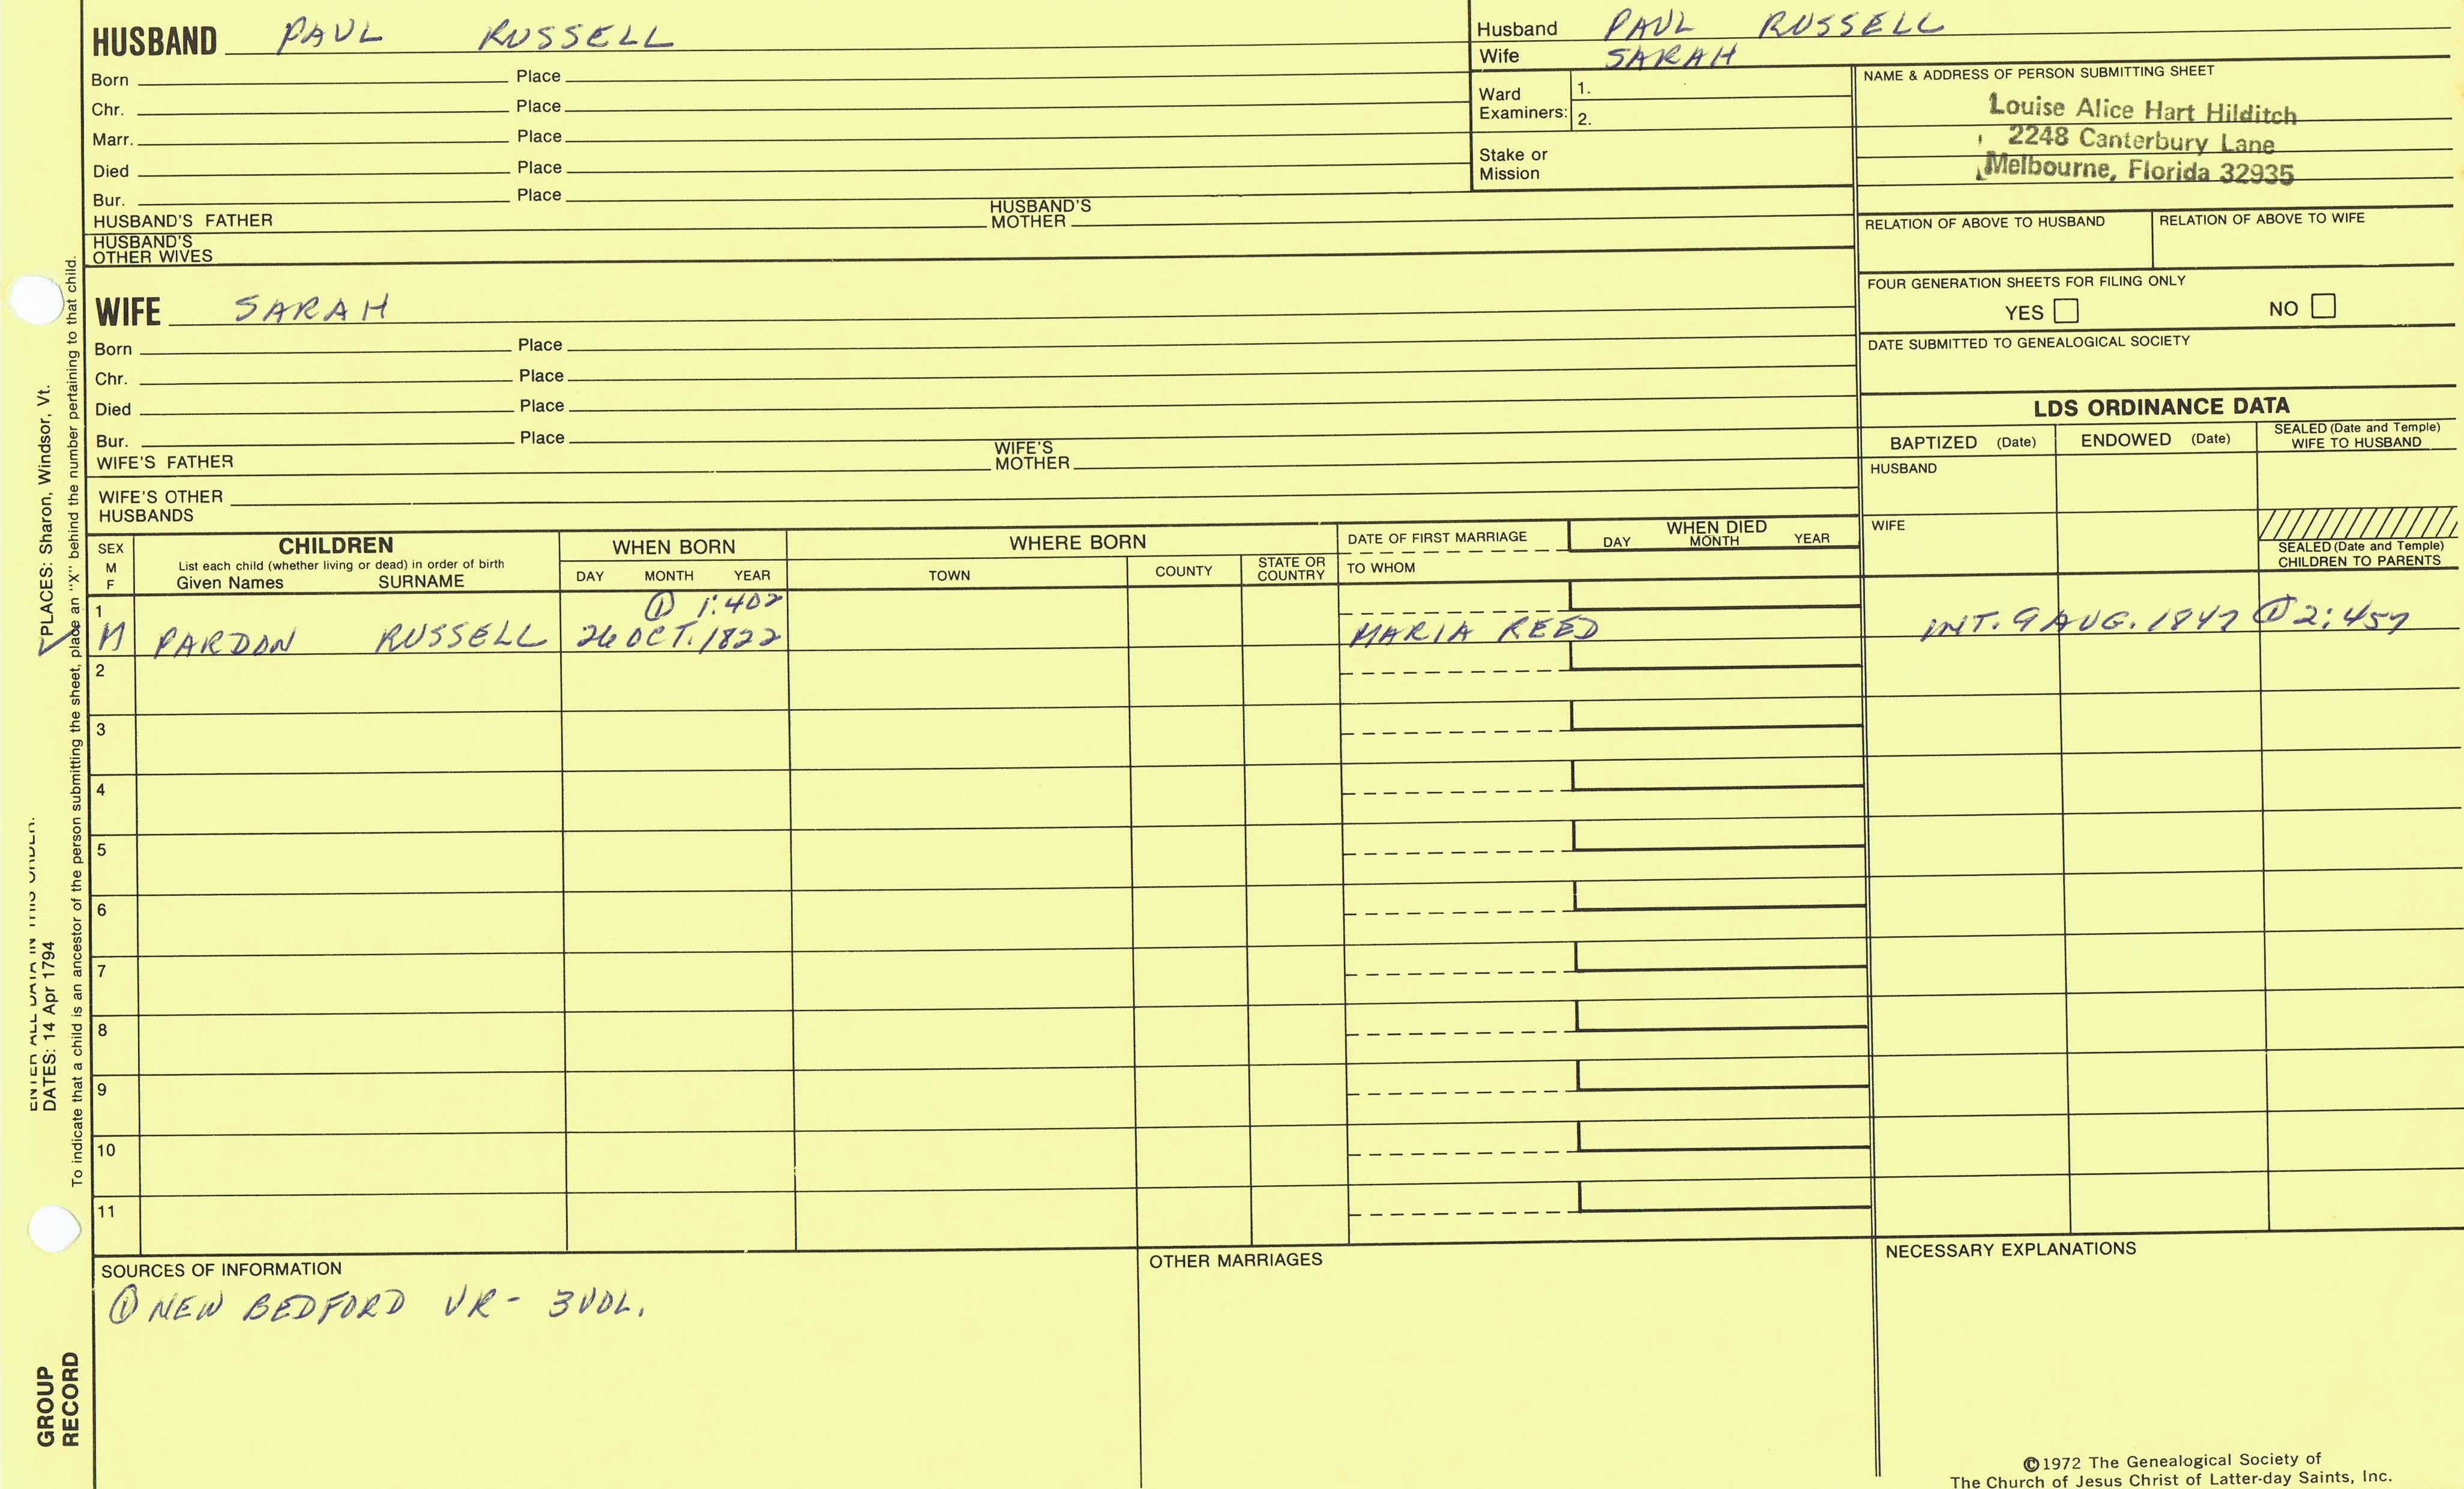 HUSBAND PAUL RUSSELL
Born Place
Chr. Place
Marr. Place
Died Place
Bur. Place
HUSBAND'S FATHER HUSBAND'S MOTHER
HUSBAND'S OTHER WIVES
Husband PAUL RUSSELL
Wife SARAH
Ward Examiners: 1.
2.
Stake or Mission
NAME & ADDRESS OF PERSON SUBMITTING SHEET
Louise Alice Hart Hilditch
2248 Canterbury Lane
Melbourne, Florida 32935
RELATION OF ABOVE TO HUSBAND RELATION OF ABOVE TO WIFE
FOUR GENERATION SHEETS FOR FILING ONLY
YES NO
DATE SUBMITTED TO GENEALOGICAL SOCIETY
WIFE SARAH
Born Place
Chr. Place
Died Place
Bur. Place
WIFE'S FATHER WIFE'S MOTHER
WIFE'S OTHER HUSBANDS
LDS ORDINANCE DATA
BAPTIZED (Date) ENDOWED (Date) SEALED (Date and Temple) WIFE TO HUSBAND
HUSBAND
WIFE
SEALED (Date and Temple) CHILDREN TO PARENTS
SEX M F
CHILDREN
List each child (whether living or dead) in order of birth
Given Names SURNAME
WHEN BORN
DAY MONTH YEAR
WHERE BORN
TOWN COUNTY STATE OR COUNTRY
DATE OF FIRST MARRIAGE
TO WHOM
WHEN DIED
DAY MONTH YEAR
1 ① 1:402
M PARDON RUSSELL 26 OCT. 1822 MARIA REED INT. 9 AUG. 1847 ① 2:457
2
3
4
5
6
7
8
9
10
11
SOURCES OF INFORMATION
① NEW BEDFORD VR - 3 VOL.
OTHER MARRIAGES
NECESSARY EXPLANATIONS
©1972 The Genealogical Society of
The Church of Jesus Christ of Latter-day Saints, Inc.
GROUP
RECORD
ENTER ALL DATA IN THIS ORDER:
DATES: 14 Apr 1794
PLACES: Sharon, Windsor, Vt.
To indicate that a child is an ancestor of the person submitting the sheet, place an "X" behind the number pertaining to that child.